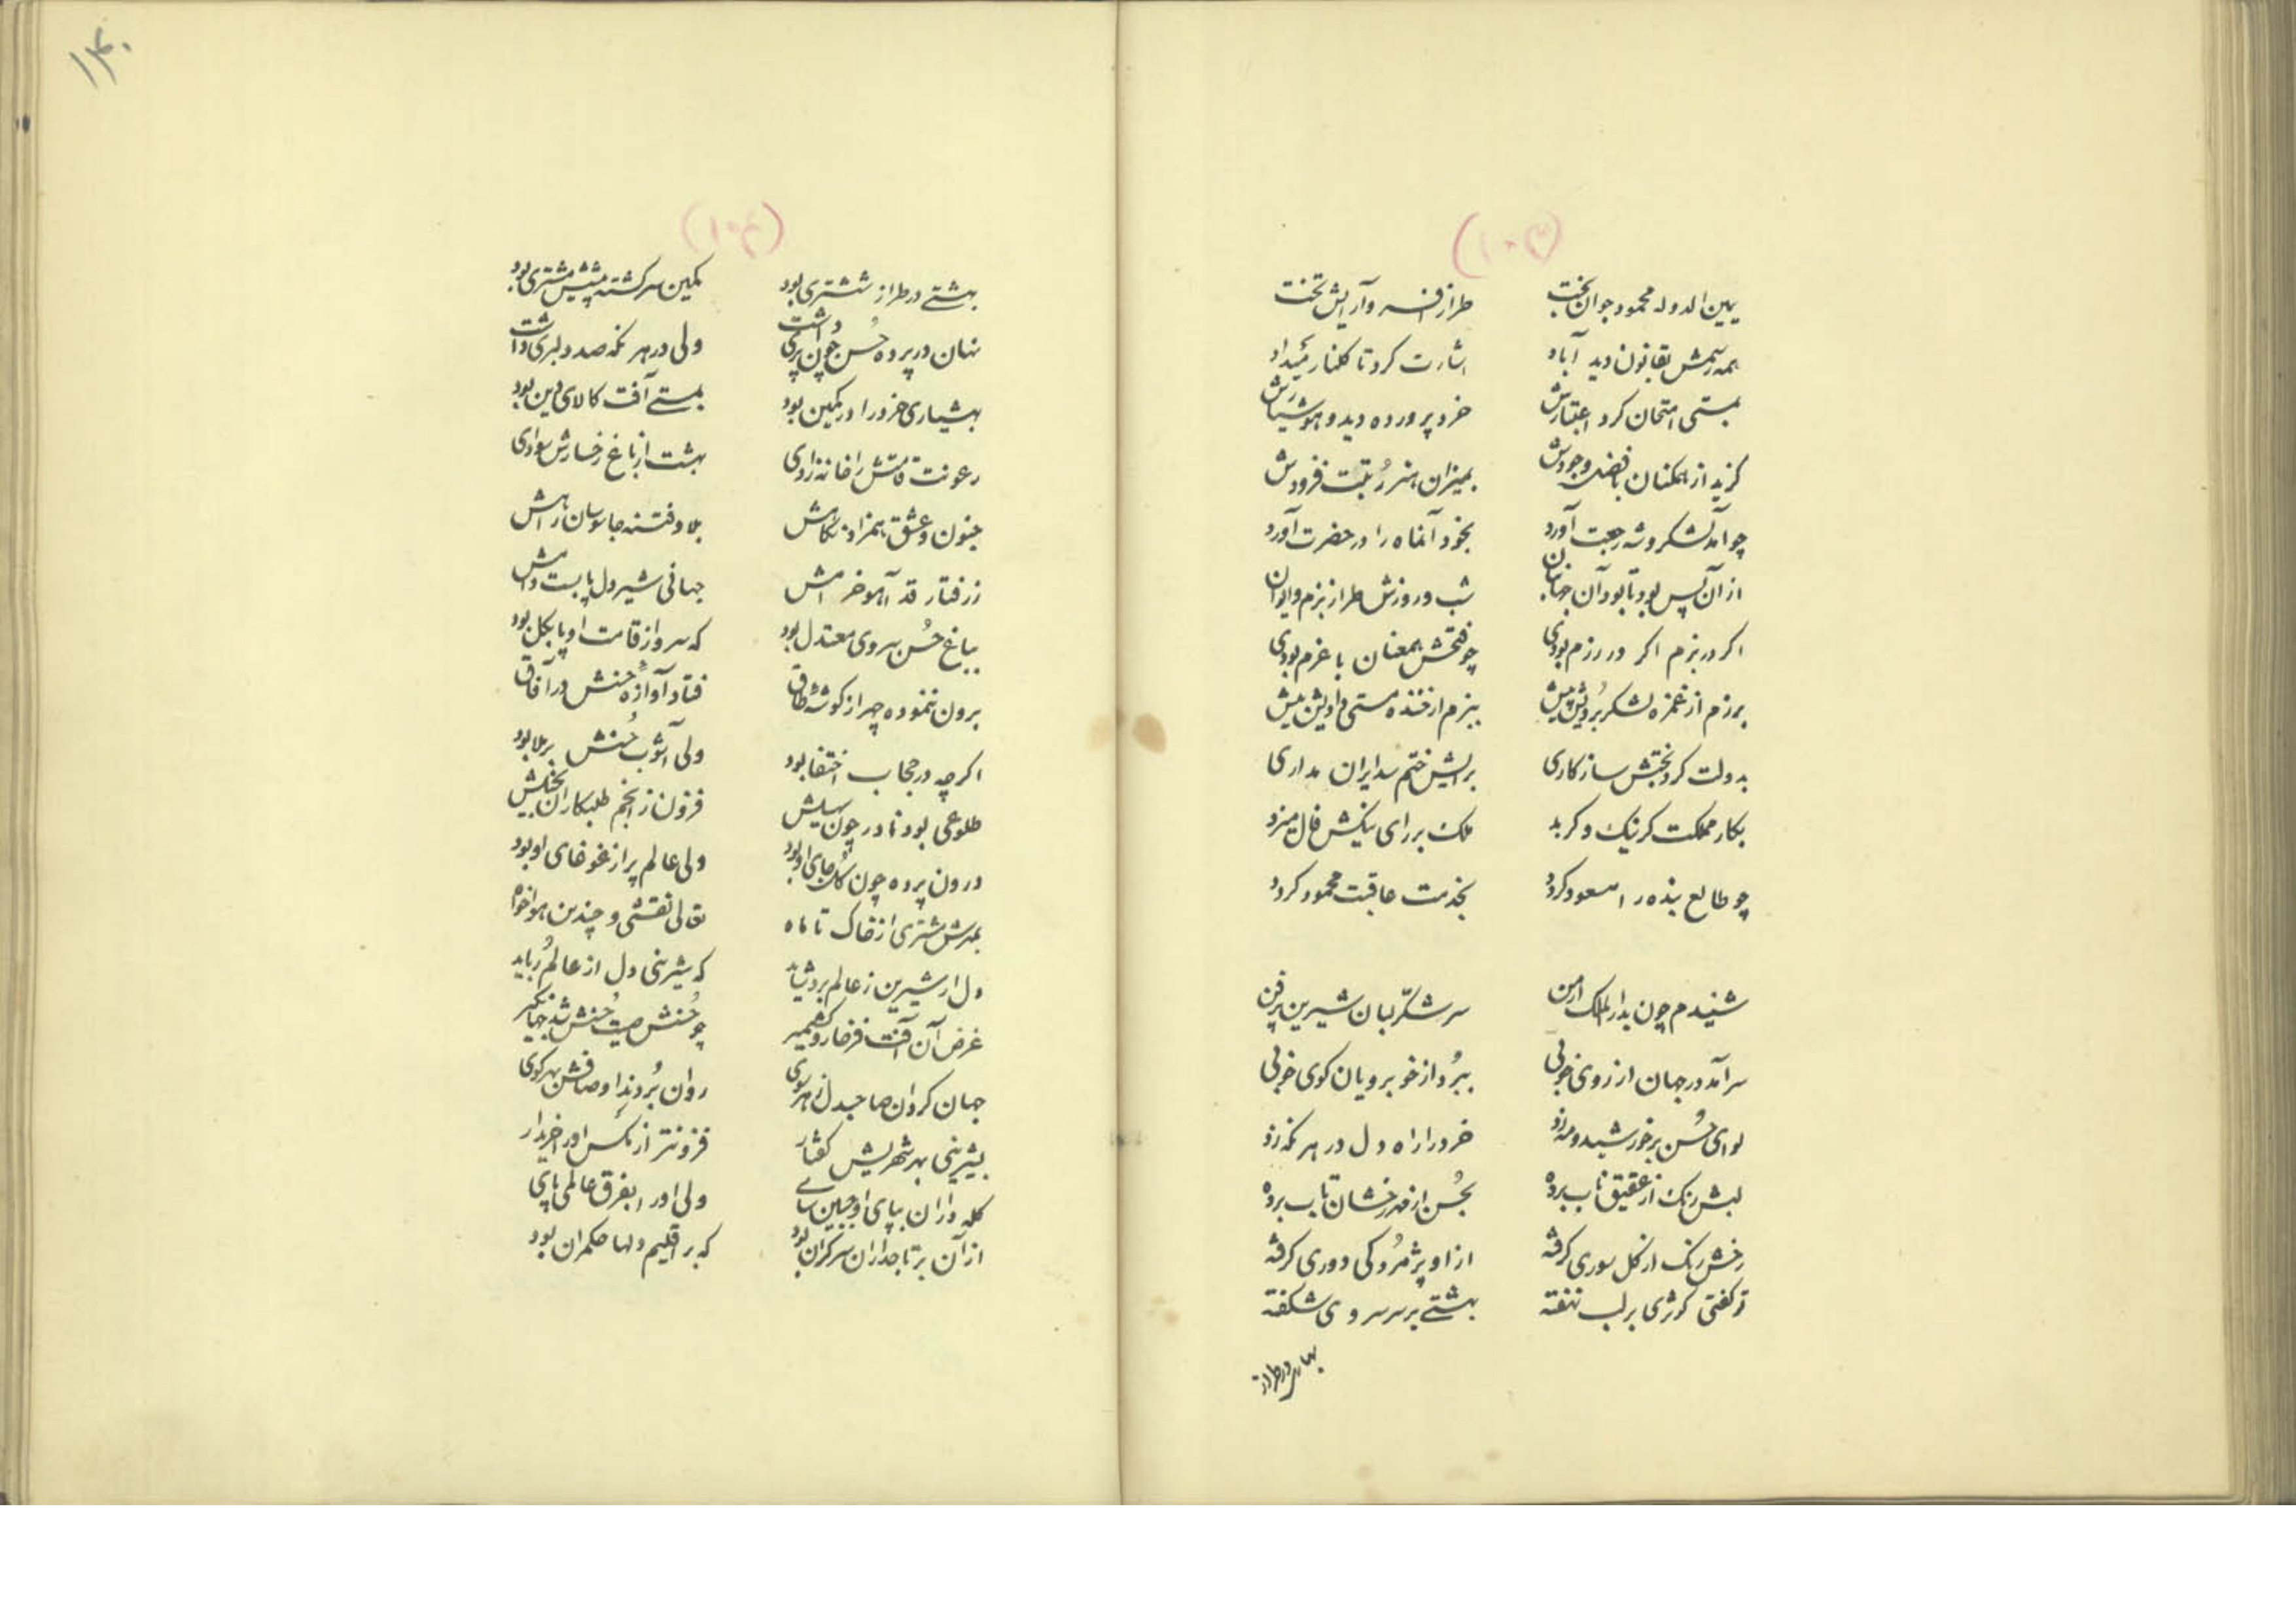 (۱۰۳)
یمین الدوله محمود جوان بخت
طراز افسر و آرایش تخت
همه رسمش بقانون دید آباد
اشارت کرد تا کلنار
بمستی امتحان کرد اعتبارش
خرد پرورده دید و هوشیارش
کزید از همکنان فضل وجودش
بمیزان هنر رُتبت فزودش
چو آمد لشکر و شه رجعت آورد
بخود آنماه را در حضرت آورد
از آن پس بود تا بود آن جهانبان
شب و روزش طراز بزم و ایوان
اکر در بزم اکر در رزم بودی
چو فتحش همعنان با عزم بودی
برزم از غمزه لشکر بُردیش پیش
ببزم از خنده مستی دادیش بیش
بدولت کرد بختش سازکاری
برایش ختم شد ایران مداری
بکار مملکت کر نیک و کر بد
ملک بر رای نیکش فال میزد
چو طالع بنده را مسعود کردد
بخدمت عاقبت محمود کردد
شنیدم چون بدار الملک ارمن
سر شکّر لبان شیرین پرفن
سرآمد در جهان از روی خوبی
ببُرد از خوبرویان کوی خوبی
لوای حُسن بر خورشید و مه زد
خرد را راه دل در هر نکه زد
لبش رنک از عقیق ناب برده
بحُسن از مه رخشان تاب برده
رخش رنک از کل سوری کرفته
از او پژمُردکی دوری کرفته
تو کفتی کوثری بر لب نهفته
بهشتے بر سر سروی شکفته
(۱۰۴)
بهشتے در طراز ششتری بود
کمین سرکشته پیشش مشتری بود
نهان در پرده حُسن چون پری داشت
ولی در هر نکه صد دلبری داشت
بهشیاری خرد را در کمین بود
بمستے آفت کالای دین بود
رعونت قامتش را خانه زادی
بهشت از باغ رخسارش سوادی
جنون و عشق همزاد نکاهش
بلا و فتنه جاسوسان راهش
ز رفتار قد آهو خرامش
جهانی شیردل پا بست دامش
بباغ حُسن سروی معتدل بود
که سرو از قامت او پا بکل بود
برون ننموده چهر از کوشه طاق
فتاد آوازه حُسنش در آفاق
اکر چه در حجاب اختفا بود
ولی آشوب حُسنش بر ملا بود
طلوعی بود نادر چون سهیلش
فزون از انجم طلبکاران خیلش
درون پرده چون کل جای او بود
ولی عالم پر از غوغای او بود
بمهرش مشتری از خاک تا ماه
تعالی نقشی و چندین هواخواه
دل ار شیرین ز عالم برد شاید
که شیرینی دل از عالم رُباید
غرض آن آفت فرخار و کشمیر
چو حُسنش صیت حُسنش شد جهانکیر
جهان کردان صاحبدل ز هر سوی
روان بُردند اوصافش بهر کوی
بشیرینی بهر شهریش کفتار
فزونتر از مکس او را خریدار
کله داران بپای او جبین سای
ولی او را بفرق عالمی پای
از آن بر تاجداران سرکران بود
که بر اقلیم دلها حکمران بود